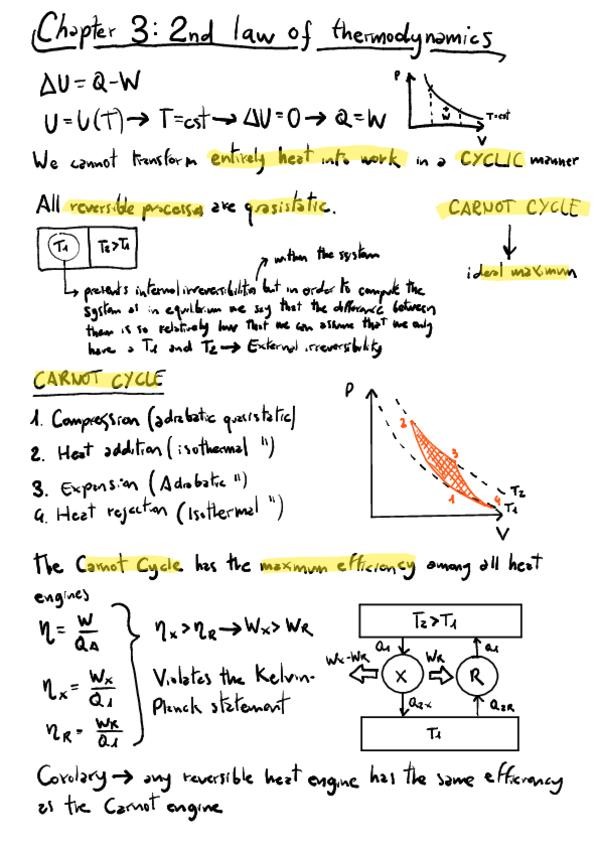 Chapter 3: 2nd law of thermodynamics
ΔU = Q-W
U = U(T) → T=cst → ΔU=0 → Q=W
P
W
T=cst
V
We cannot transform entirely heat into work in a CYCLIC manner
All reversible process are quasistatic.
CARNOT CYCLE
ideal maximum
T1
T2>T1
within the system
presents internal irreversibilities but in order to compute the
system as in equilibrium we say that the difference between
them is so relatively low that we can assume that we only
have a T1 and T2 → External irreversibility
CARNOT CYCLE
1. Compression (adiabatic quasistatic)
2. Heat addition (isothermal ")
3. Expansion (Adiabatic ")
4. Heat rejection (Isothermal ")
P
2
3
1
4
T2
T1
V
The Carnot Cycle has the maximum efficiency among all heat
engines
η = W/QA
ηx = Wx/Q1
ηR = WR/Q1
ηx > ηR → Wx > WR
Violates the Kelvin-
Planck statement
T2>T1
Q1
Q1
Wx-WR
X
WR
R
Q2x
Q2R
T1
Corolary → any reversible heat engine has the same efficiency
as the Carnot engine